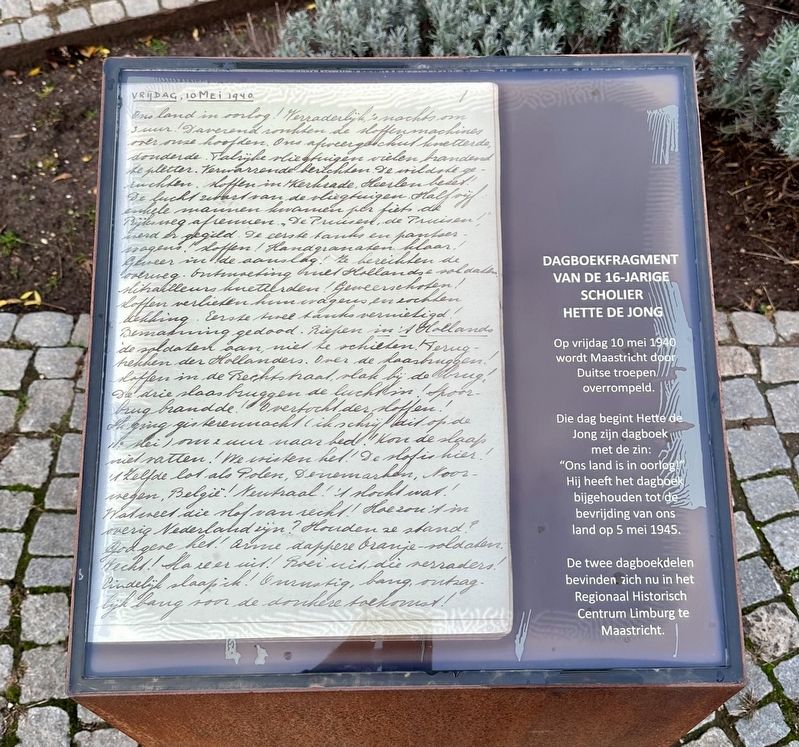 VRIJDAG, 10 MEI 1940. 1
Ons land in oorlog! Verraderlijk 's nachts om
3 uur! Daverend ronkten de moffenmachines
over onze hoofden. Ons afweergeschut knetterde,
donderde. Talrijke vliegtuigen vielen brandend
te pletter. Verwarrende berichten. De wildste ge-
ruchten. Moffen in Kerkrade, Heerlen bezet.
De lucht zwart van de vliegtuigen. Half vijf
enkele mannen kwamen per fiets de
Rijksweg afrennen. "De Pruisen, de Pruisen!"
werd er gegild. De eerste tanks en pantser-
wagens! Moffen! Handgranaten klaar!
Geweer in de aanslag! Ze bereikten de
overweg. Ontmoeting met Hollandse soldaten.
Mitrailleurs knetterden! Geweerschoten!
Moffen verlieten hun wagens en zochten
dekking. Eerste twee tanks vernietigd!
Bemanning gedood. Riepen in 't Hollands
de soldaten aan, niet te schieten! Terug-
trekken der Hollanders. Over de Maasbruggen!
Moffen in de Rechtstraat, vlak bij de brug!
De drie Maasbruggen de lucht in! Spoor-
brug brandde! Overtocht der moffen!
Ik ging gisterennacht (ik schrijf dit op de
mei) om 2 uur naar bed! Kon de slaap
niet vatten! We wisten het! De mof is hier!
't Zelfde lot als Polen, Denemarken, Noor-
wegen, België! Neutraal! 't Mocht wat!
Wat weet die mof van recht! Hoe zou 't in
overig Nederland zijn? Houden ze stand?
God geve het! Arme dappere Oranje-soldaten.
Vecht! Ha ze er uit! Roei uit die verraders!
Eindelijk slaap ik! Onrustig, bang, ontzag-
lijk bang voor de donkere toekomst!
DAGBOEKFRAGMENT
VAN DE 16-JARIGE
SCHOLIER
HETTE DE JONG
Op vrijdag 10 mei 1940
wordt Maastricht door
Duitse troepen
overrompeld.
Die dag begint Hette de
Jong zijn dagboek
met de zin:
"Ons land is in oorlog!"
Hij heeft het dagboek
bijgehouden tot de
bevrijding van ons
land op 5 mei 1945.
De twee dagboekdelen
bevinden zich nu in het
Regionaal Historisch
Centrum Limburg te
Maastricht.